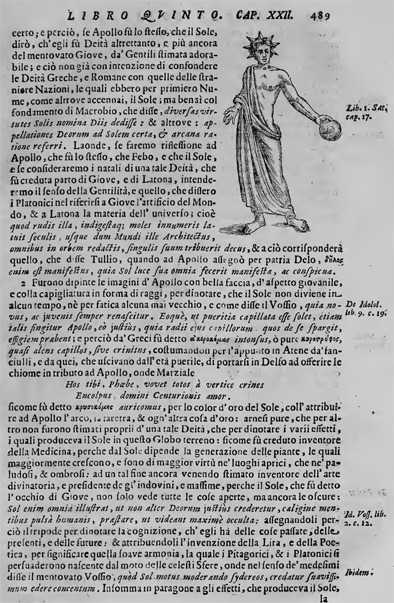 LIBRO QVINTO. CAP. XXII. 489
certo; e perciò, se Apollo fù lo stesso, che il Sole,
dirò, ch'egli fù Deità altrettanto, e più ancora
del mentovato Giove, da' Gentili stimata adora-
bile; e ciò non già con intenzione di confondere
le Deità Greche, e Romane con quelle delle stra-
niere Nazioni, le quali ebbero per primiero Nu-
me, come altrove accennai, il Sole; ma bensì col
fondamento di Macrobio, che disse, diversas vir-
tutes Solis nomina Diis dedisse: & altrove: ap-
pellationes Deorum ad Solem certa, & arcana ra-
tione referri. Laonde, se faremo riflessione ad
Apollo, che fù lo stesso, che Febo, e che il Sole,
e se consideraremo i natali di una tale Deità, che
fù creduta parto di Giove, e di Latona, intende-
remo il senso della Gentilità, e quello, che dissero
i Platonici nel riferirsi a Giove l'artificio del Mon-
do, & a Latona la materia dell' universo; cioè
quod rudis illa, indigestaq; moles innumeris la-
tuit seculis, usque dum Mundi ille Architectus,
omnibus in orbem redactis, singulis suum tribuerit decus, & a ciò corrisponderà
quello, che disse Tullio, quando ad Apollo assegnò per patria Delo,
enim est manifestus, quia Sol luce sua omnia fecerit manifesta, ac conspicua.
2 Furono dipinte le imagini d' Apollo con bella faccia, d'aspetto giovanile,
e colla capigliatura in forma di raggi, per dinotare, che il Sole non diviene in
alcun tempo, nè per fatica alcuna mai vecchio, e come disse il Vossio, quia no-
vus, ac juvenis semper renascitur. Eoque, ut pueritia capillata esse solet, etiam
tali singitur Apollo, eò justiùs, quia radii ejus capillorum quos de se spargit,
effigiem prabent; e perciò da' Greci fù detto intonsus, ò pure
quasi alens capillos, sive crinitus, costumandon per l'appunto in Atene da' fan-
ciulli, e da quei, che uscivano dall'età puerile, di portarsi in Delfo ad offerire le
chiome in tributo ad Apollo, onde Marziale
Hos tibi, Phœbe, vovet totos à vertice crines
Encolpus, domini Centurionis amor.
sicome fù detto auricomus, per lo color d'oro del Sole, coll' attribui-
re ad Apollo l'arco, la saetta, & ogn'altra cosa d'oro: arnesi pure, che per al-
tro non furono stimati proprj d'una tale Deità, che per dinotare i varii effetti,
i quali produceva il Sole in questo Globo terreno: sicome fù creduto inventore
della Medicina, perche dal Sole dipende la generazione delle piante, le quali
maggiormente crescono, e sono di maggior virtù ne' luoghi aprici, che ne' pa-
ludosi, & ombrosi: ad un tal fine ancora venendo stimato inventore dell'arte
divinatoria, e presidente de gl' indovini, e massime, perche il Sole, che fù detto
l' occhio di Giove, non solo vede tutte le cose aperte, ma ancora le oscure:
Sol enim omnia illustrat, ut non alter Deorum justiùs crederetur, caligine men-
tibus pulsâ humanis, præstare, ut videant maximè occulta: assegnandoli per-
ciò il tripode per dinotare la cognizione, ch' egli hà delle cose passate, delle
presenti, e delle future: & attribuendoli l'invenzione della Lira, e della Poe-
tica, per significare quella soave armonia, la quale i Pitagorici, & i Platonici si
persuaderono nascente dal moto delle celesti Sfere, onde nel senso de' medesimi
disse il mentovato Vossio, quòd Sol motus moderando sydereos, credatur suavissi-
mum edere concentum. Insomma in paragone a gli effetti, che produceva il Sole,
la
Lib. 1. Sat.
cap. 17.
De Idolol.
lib. 9. c. 19.
Id. Voss. lib.
2. c. 12.
Ibidem.